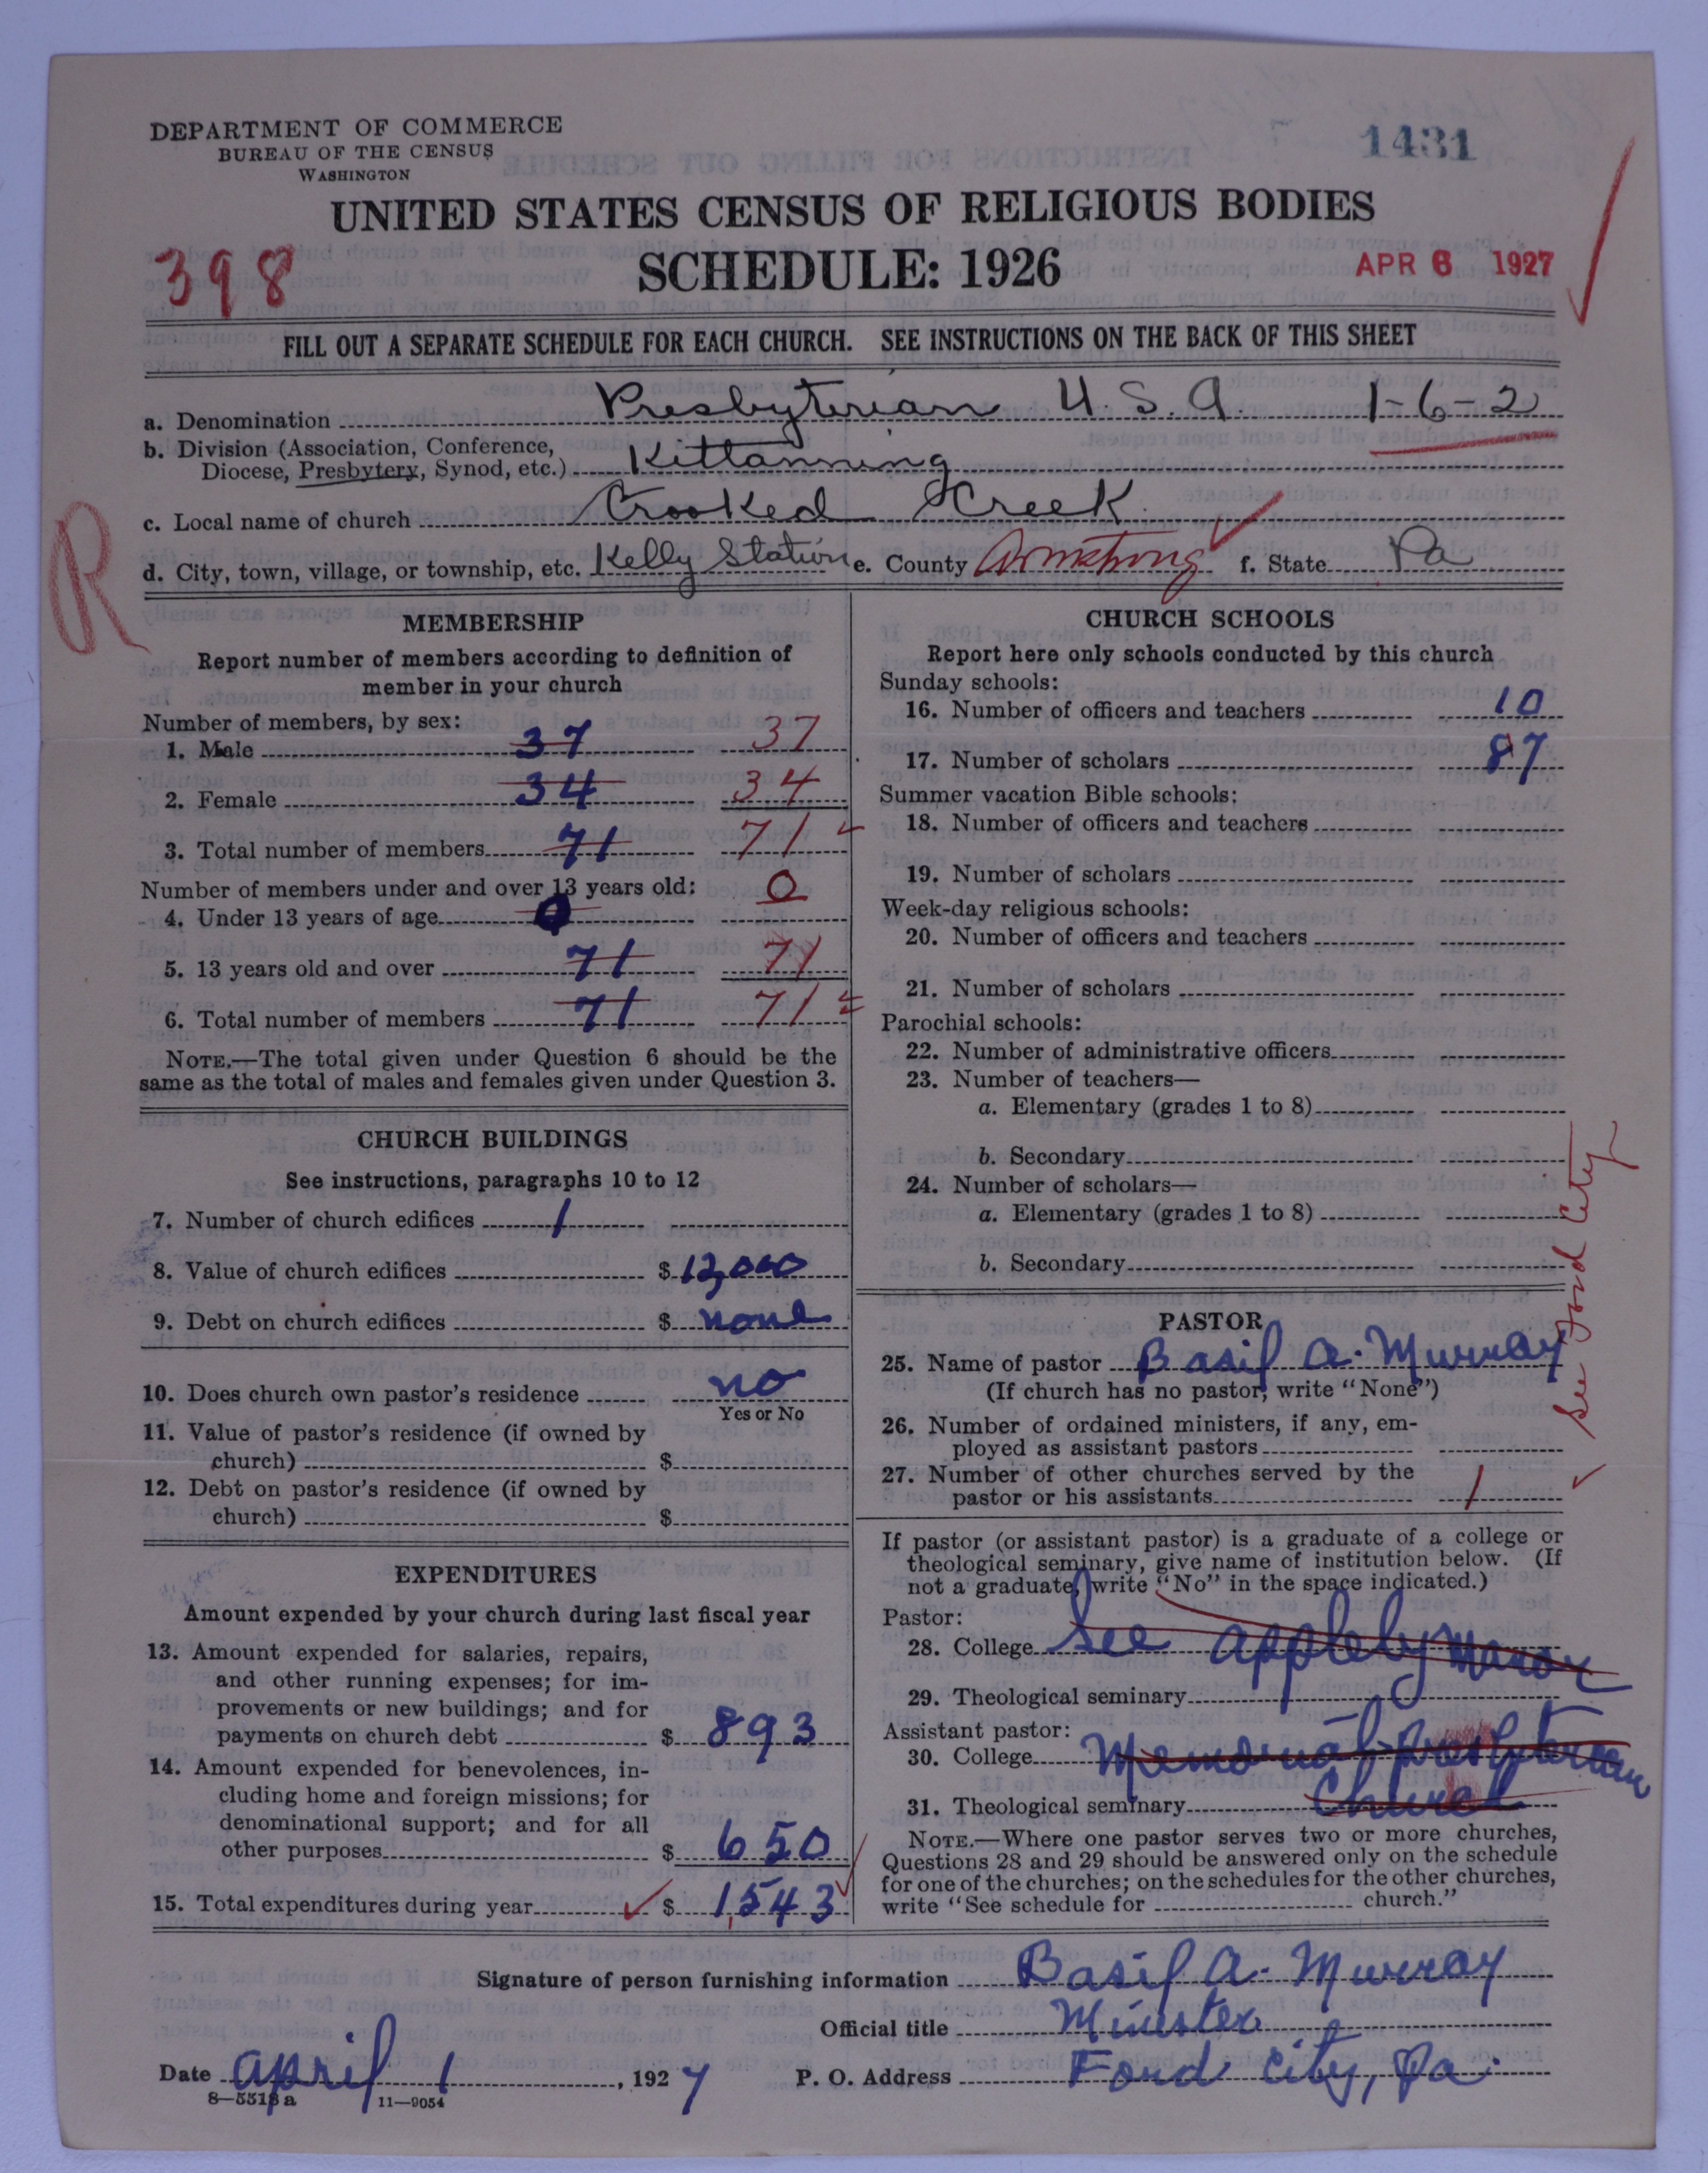 DEPARTMENT OF COMMERCE
BUREAU OF THE CENSUS
WASHINGTON
1431
UNITED STATES CENSUS OF RELIGIOUS BODIES
398
SCHEDULE: 1926
APR 6 1927
FILL OUT A SEPARATE SCHEDULE FOR EACH CHURCH. SEE INSTRUCTIONS ON THE BACK OF THIS SHEET
a. Denomination Presbyterian U.S.A. 1-6-2
b. Division (Association, Conference,
Diocese, Presbytery, Synod, etc.) Kittanning
c. Local name of church Crooked Creek
d. City, town, village, or township, etc. Kelly Station e. County Armstrong f. State Pa
R
MEMBERSHIP
Report number of members according to definition of
member in your church
Number of members, by sex:
1. Male 37 37
2. Female 34 34
3. Total number of members 71 71
Number of members under and over 13 years old: 0
4. Under 13 years of age 0
5. 13 years old and over 71 71
6. Total number of members 71 71
NOTE.—The total given under Question 6 should be the
same as the total of males and females given under Question 3.
CHURCH BUILDINGS
See instructions, paragraphs 10 to 12
7. Number of church edifices 1
8. Value of church edifices $ 12,000
9. Debt on church edifices $ none
10. Does church own pastor's residence no
Yes or No
11. Value of pastor's residence (if owned by
church) $
12. Debt on pastor's residence (if owned by
church) $
EXPENDITURES
Amount expended by your church during last fiscal year
13. Amount expended for salaries, repairs,
and other running expenses; for im-
provements or new buildings; and for
payments on church debt $ 893
14. Amount expended for benevolences, in-
cluding home and foreign missions; for
denominational support; and for all
other purposes $ 650
15. Total expenditures during year $ 1,543
CHURCH SCHOOLS
Report here only schools conducted by this church
Sunday schools:
16. Number of officers and teachers 10
17. Number of scholars 87
Summer vacation Bible schools:
18. Number of officers and teachers
19. Number of scholars
Week-day religious schools:
20. Number of officers and teachers
21. Number of scholars
Parochial schools:
22. Number of administrative officers
23. Number of teachers—
a. Elementary (grades 1 to 8)
b. Secondary
24. Number of scholars—
a. Elementary (grades 1 to 8)
b. Secondary
See Ford City
PASTOR
25. Name of pastor Basil A. Murray
(If church has no pastor, write "None")
26. Number of ordained ministers, if any, em-
ployed as assistant pastors
27. Number of other churches served by the
pastor or his assistants 1
If pastor (or assistant pastor) is a graduate of a college or
theological seminary, give name of institution below. (If
not a graduate, write "No" in the space indicated.)
Pastor:
28. College See Appleby Manor
29. Theological seminary
Assistant pastor:
30. College Memorial Presbyterian
31. Theological seminary Church
NOTE.—Where one pastor serves two or more churches,
Questions 28 and 29 should be answered only on the schedule
for one of the churches; on the schedules for the other churches,
write "See schedule for church."
Signature of person furnishing information Basil A. Murray
Official title Minister
Date April 1, 1927 P. O. Address Ford City, Pa.
8—5518 a 11—9054